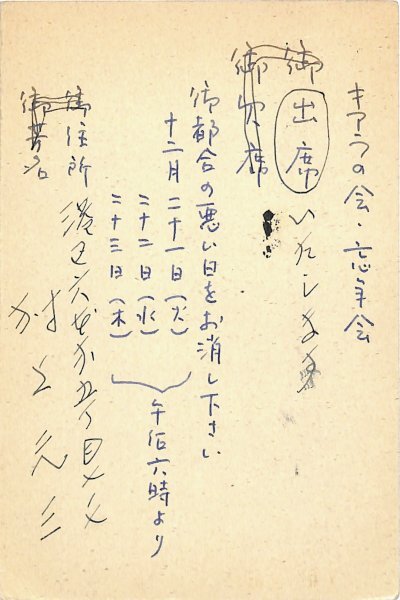 キアラの会・忘年会
御出席いたします
御欠席
御都合の悪い日をお消し下さい
十二月 二十一日(火)
二十二日(水)
二十三日(木)
午后六時より
御住所
御芳名
村上元三